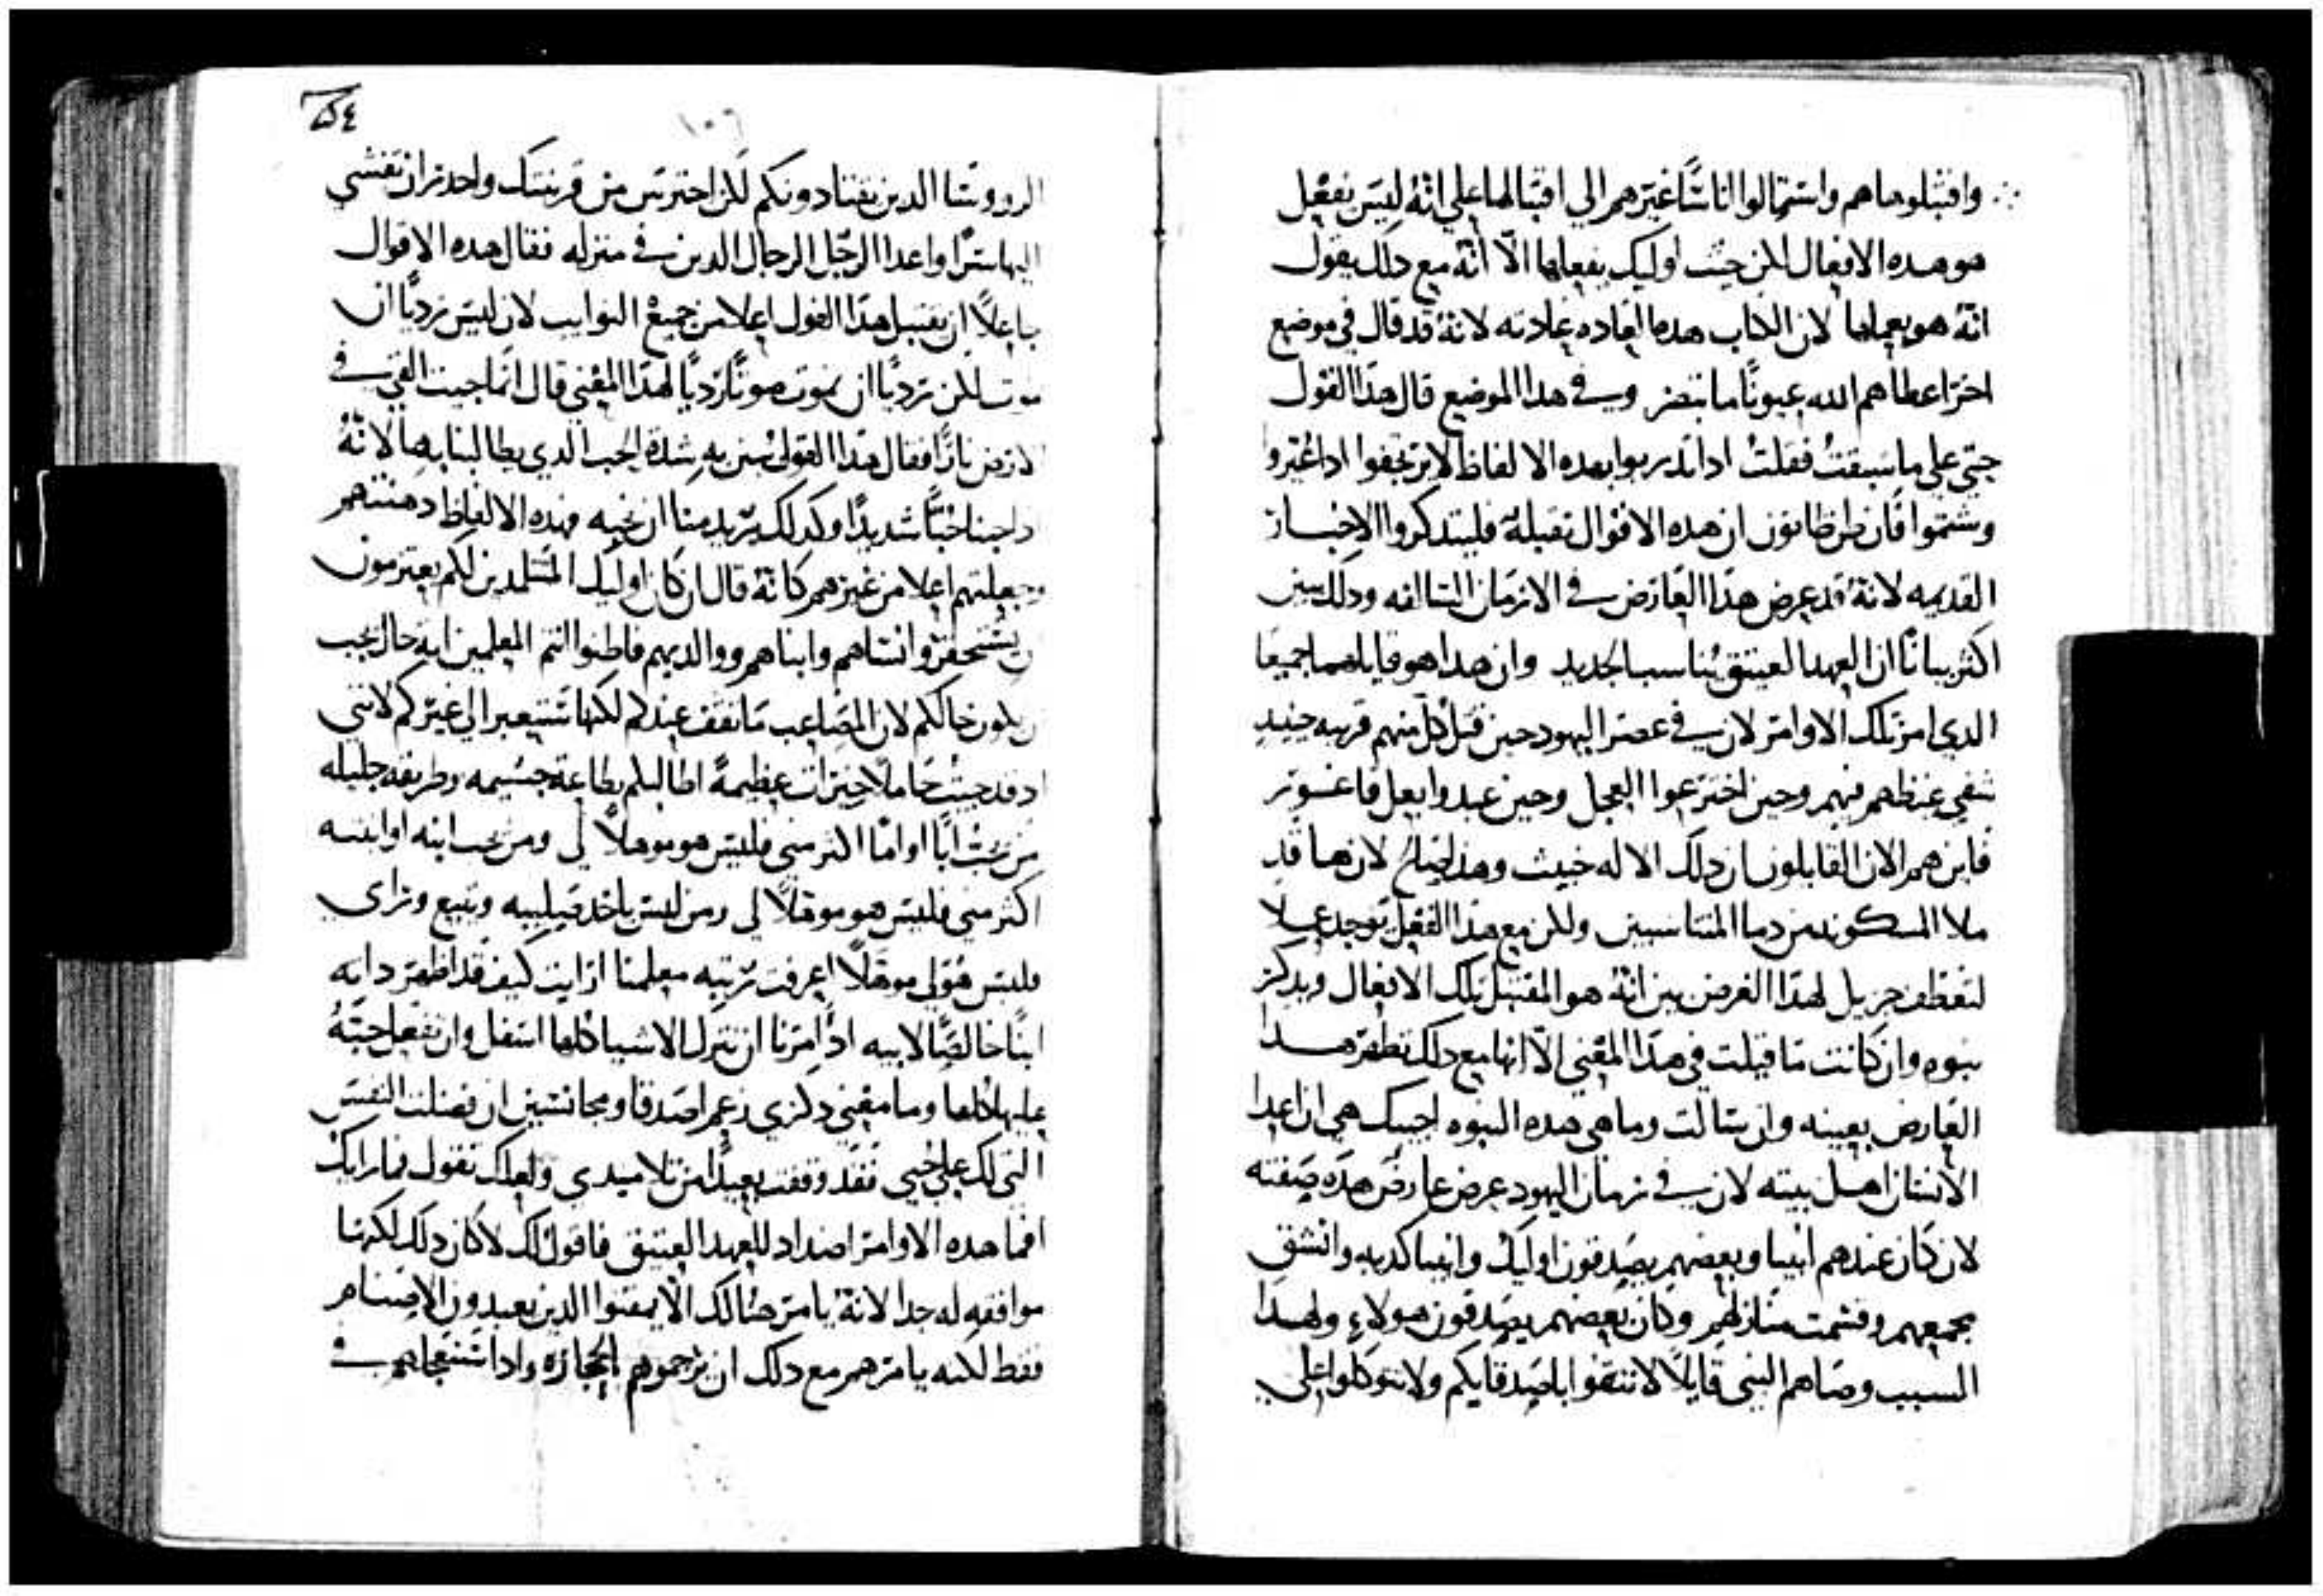 واقتبلوها هم واستمالوا اناسًا غيرهم الي اقتبالها علي انهُ ليس يفعل
هو هده الافعال لكن حيث اوليك يفعلوها الّا انهُ مع دلك يقول
انهُ هو يعملها لان الكتاب هده العاده عادته لانهُ قد قال في موضع
اخر اعطاهم الله عيونًا ما تبصر وفي هدا الموضع قال هدا القول
حتي علي ما سبقت فقلتُ ادا تدربوا بهده الالفاظ لا يرتجفوا ادا عُيّروا
وشتموا فان ظن ظانون ان هده الاقوال ثقيلة فليتدكروا الاخبار
القديمه لانهُ قد عرض هدا العارض في الازمان السالفه ودلك يبين
اكثر بيانًا ان العهد العتيق يُناسب الجديد وان هدا هو قايلهما جميعا
الدي امر بتلك الاوامر لان في عصر اليهود حين قتل كل منهم قريبه حينيدٍ
شفي غيظهم منهم وحين اخترعوا العجل وحين عبدوا بعل فاغور
فاين هم الان القايلون ان دلك الاله خبيث وهدا صالح لان ها قد
ملا المسكونه من دما المتناسبين ولكن مع هدا الفعل توجد عملا
لتعطف جزيل لهدا الغرض بين انهُ هو المقتبل تلك الافعال ويدكر
نبوه وان كانت ما قيلت في هدا المعني الّا انها مع دلك تظهر هدا
العارض بعينه وان سالت وما هي هده النبوه اجيبك هي ان اعدا
الانسان اهل بيته لان في زمان اليهود عرض عارض هده صفته
لان كان عندهم انبيا وبعضهم يصدقون اوليك وانبيا كدبه وانشق
مجمعهم وقسمت منازلهم وكان بعضهم يصدقون هولاءِ ولهدا
السبب وصاهم النبي قايلًا لا تتقوا باصدقايكم ولا تتوكلوا علي
الرووسا الدين يقتادونكم لكن احترس من قرينتك واحدر ان تفشي
اليها سرًا واعدا الرجل الرجال الدين في منزله فقال هده الاقوال
جاعلًا ان يقبل هدا القول اعلا من جميع النوايب لان ليس رديًا ان
يموت لكن رديًا ان يموت موتًا رديًا لهدا المعني قال انما جيت القي في
الارض نارًا فقال هدا القول يُبين به شدة الحب الدي يطالبنا بها لانهُ
اد احبنا حُبًّا شديدًا وكدلك يريد منا ان نحبه فهده الالفاظ دهنتهم
وجعلتهم اعلا من غيرهم كانهُ قال ان كان اوليك المتتلمدين لكم يعتزمون
ان يستحقروا نساهم وابناهم ووالديهم فاظنوا انتم المعلمين اية حال يجب
ان يكون حالكم لان المصاعب ما تقف عندكم لكنها ستعبر الي غيركم لانني
اد قد جيت حاملًا خيرات عظيمةً اطالبكم بطاعة جسيمه وطريقه جليله
من يحبّ ابًا او امًا اكثر مني فليس هو موهلًا لي ومن يحب ابنه او ابنته
اكثر مني فليس هو موهلًا لي ومن ليس ياخد صليبه ويتبع وراي
فليس هو لي موهلًا اعرفت رتبه معلمنا ارايت كيف قد اظهر داته
ابنًا خالصًا لابيه ادا امرنا ان نترك الاشيا كلها اسفل وان نفعل حبّهُ
عليها كلها وما معني دكري زعم اصدقا ومجانسين ان فضلت النفس
التي لك علي حبي فقد وقفت بعيدًا من تلاميدي ولعلك تقول فما رايك
افما هده الاوامر اضداد للعهد العتيق فاقول لك لا كان دلك لكنها
موافقه له جدا لانهُ يامر هنالك الّا يمقتوا الدين يعبدون الاصنام
فقط لكنه يامرهم مع دلك ان يرجموهم بالحجاره وادا استعجلهم في